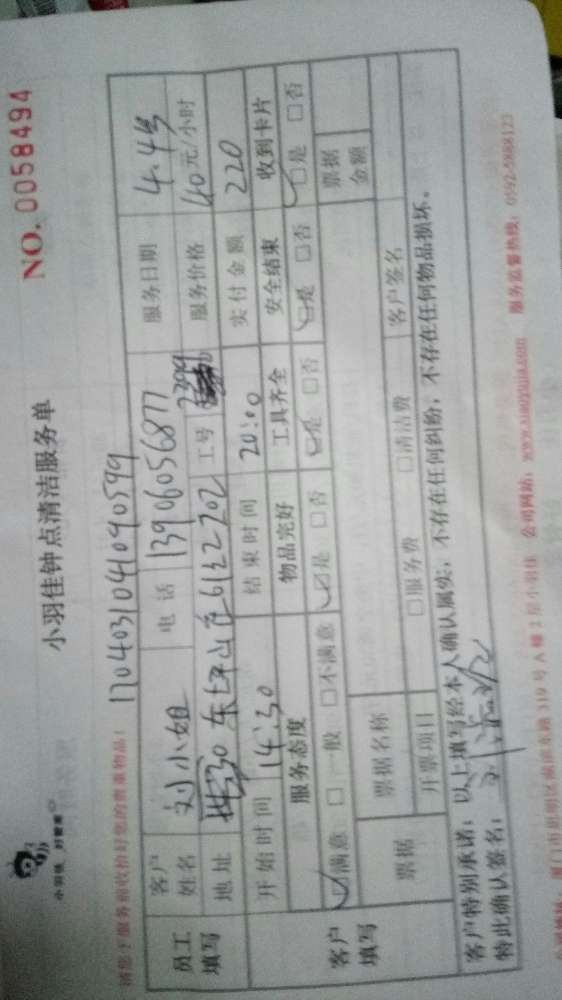 小羽佳 好管家
小羽佳钟点清洁服务单
NO. 0058494
请您于服务前收拾好您的贵重物品!
1704031041090599
员工填写
客户姓名 刘小姐 电话 13906056877 服务日期 4.4号
地址 东坪山 702 工号 服务价格 40元/小时
开始时间 14:30 结束时间 20:00 实付金额 220
客户填写
服务态度 物品完好 工具齐全 安全结束 收到卡片
☑满意 □一般 □不满意 ☑是 □否 ☑是 □否 ☑是 □否 ☑是 □否
票据 票据名称 票据金额
开票项目 □服务费 □清洁费 客户签名
客户特别承诺:以上填写经本人确认属实,不存在任何纠纷,不存在任何物品损坏。
特此确认签名:
厦门市思明区 319号A幢2层小羽佳 公司网站:www.xiaoyujia.com 服务监督热线:0592-5888123